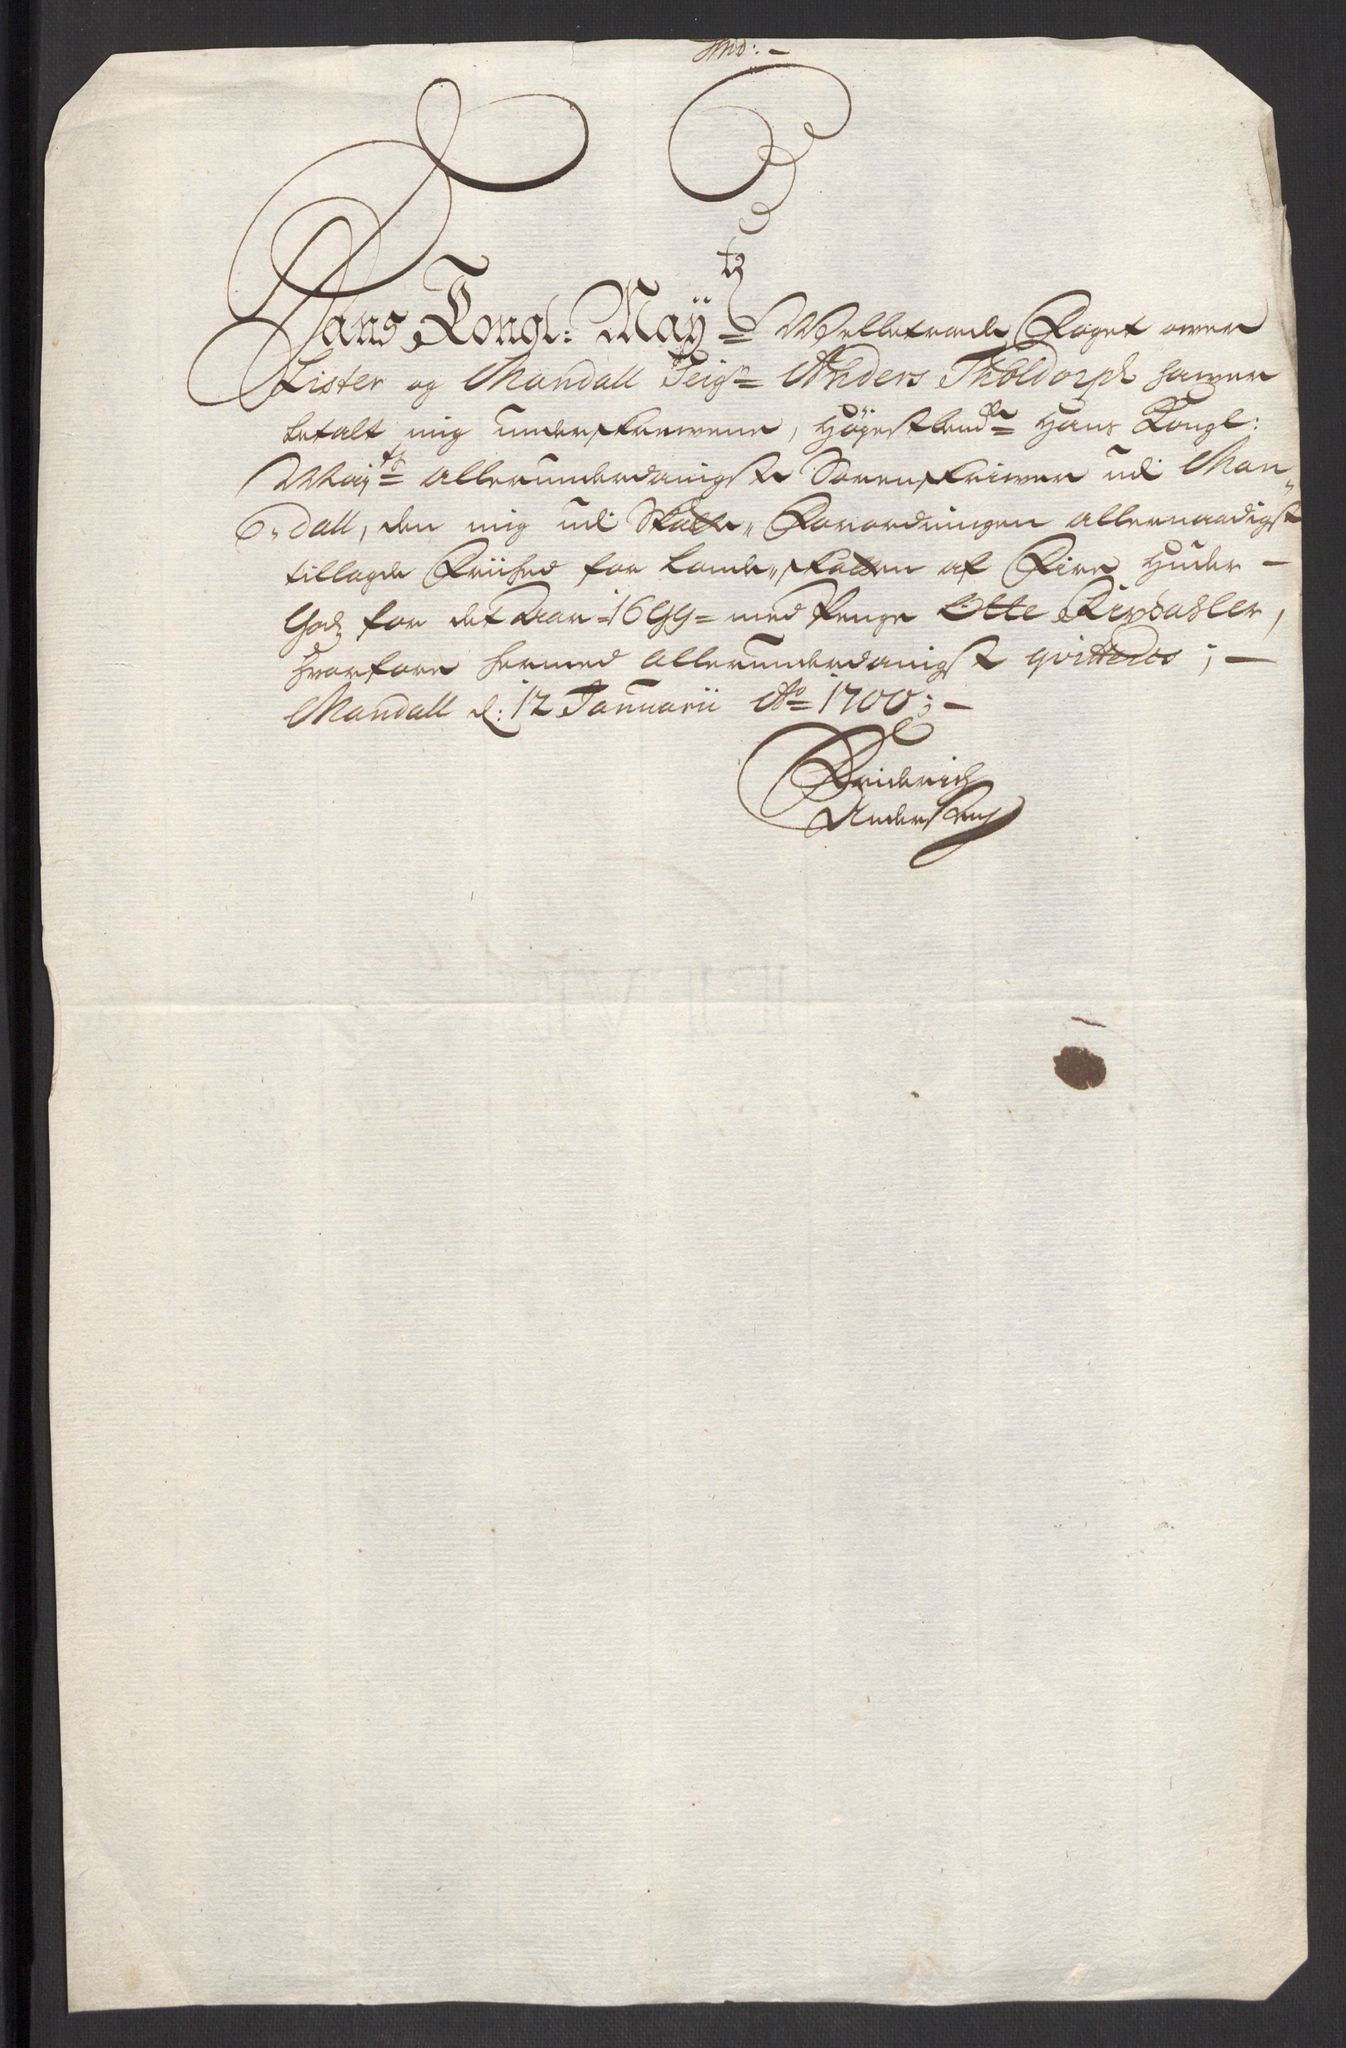 Hans Kongl: Maÿtz Welbetroede Foget ower
Lister og Mandall Seigr Anders Tholdorph hawer
betalt mig underskrewene, Høyestbemte Hans Kongl:
Mayts allerunderdanigste Sorenskriwer udi Man„
„dall, den mig udi Skatte„Forordningen allernaadigst
tillagde Friihed for Lande„skatten af Fire Huder
Godz for det Aar 1699 med Penge Otte Rixdahler,
hworfore hermed allerunderdanigst qvitteres ;
Mandall d: 12 Januarii Ao 1700 ;
Friderich
Anderssen